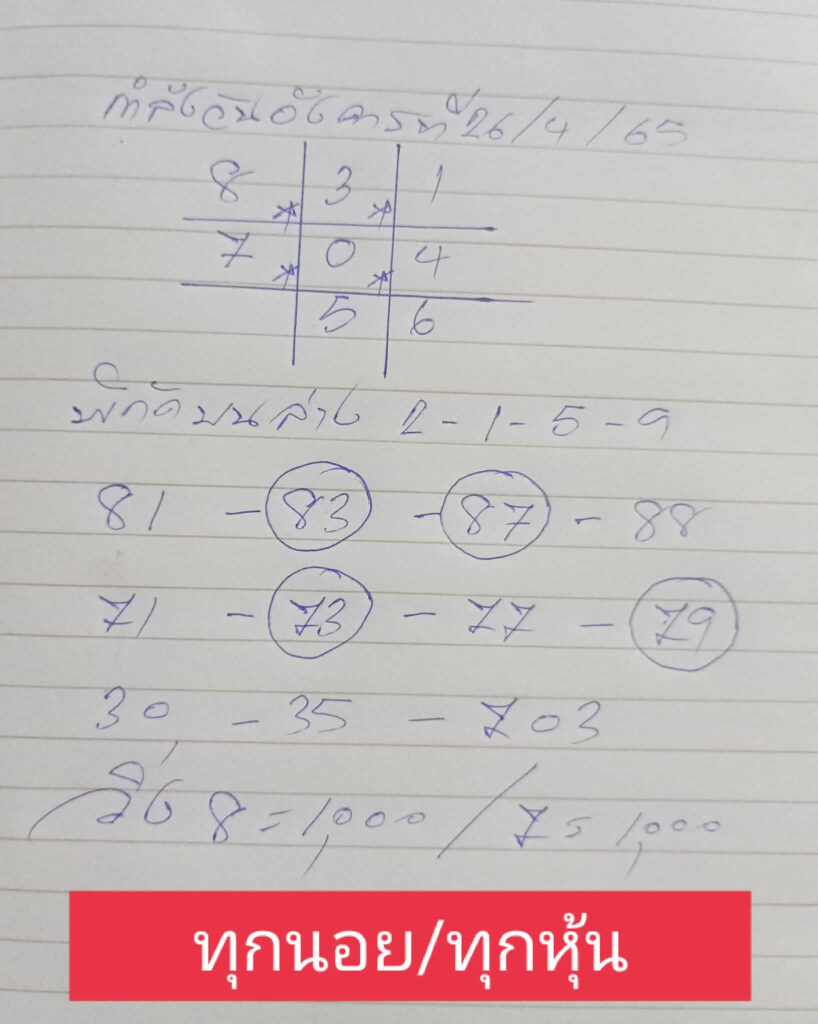 กำลังวันอังคารที่ 26/4/65
8 3 1
7 0 4
5 6
พิกัดบนล่าง 2-1-5-9
81 - 83 - 87 - 88
71 - 73 - 77 - 79
30 - 35 - 703
วิ่ง 8=1,000 / 7=1,000
ทุกนอย/ทุกหุ้น